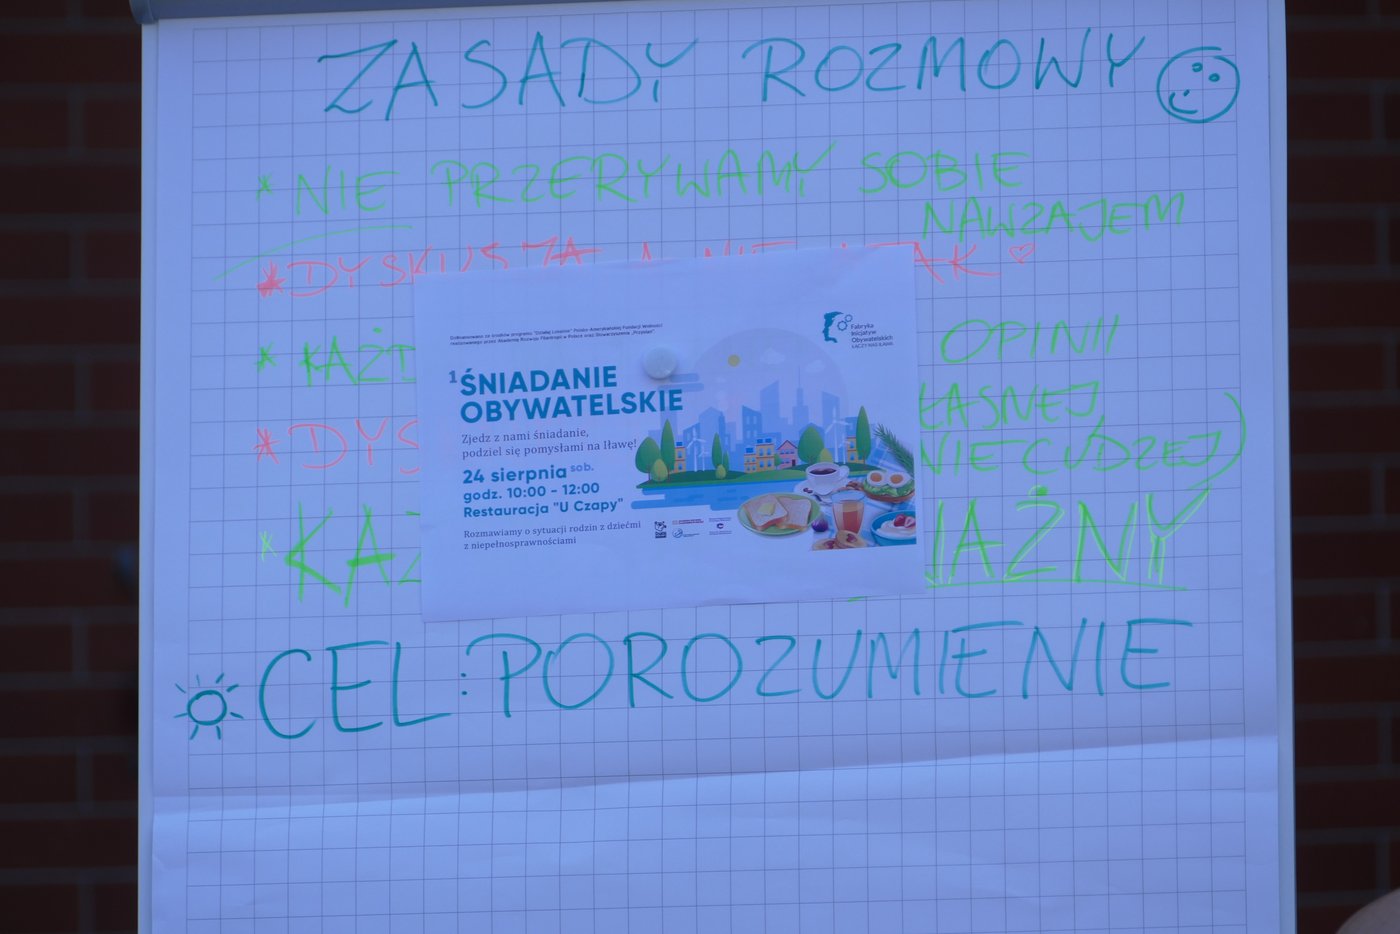 ZASADY ROZMOWY
* NIE PRZERYWAMY SOBIE
NAWZAJEM
* DYSKUSJA A NIE
* KAŻD
OPINII
ŁASNEJ,
NIE CUDZEJ)
* DYS
* KAŻ
WAŻNY
CEL: POROZUMIENIE
Dofinansowano ze środków programu "Działaj Lokalnie" Polsko-Amerykańskiej Fundacji Wolności
realizowanego przez Akademię Rozwoju Filantropii w Polsce oraz Stowarzyszenie "Przystań".
Fabryka
Inicjatyw
Obywatelskich
ŁĄCZY NAS IŁAWA
1 ŚNIADANIE
OBYWATELSKIE
Zjedz z nami śniadanie,
podziel się pomysłami na Iławę!
24 sierpnia sob.
godz. 10:00 - 12:00
Restauracja "U Czapy"
Rozmawiamy o sytuacji rodzin z dziećmi
z niepełnosprawnościami